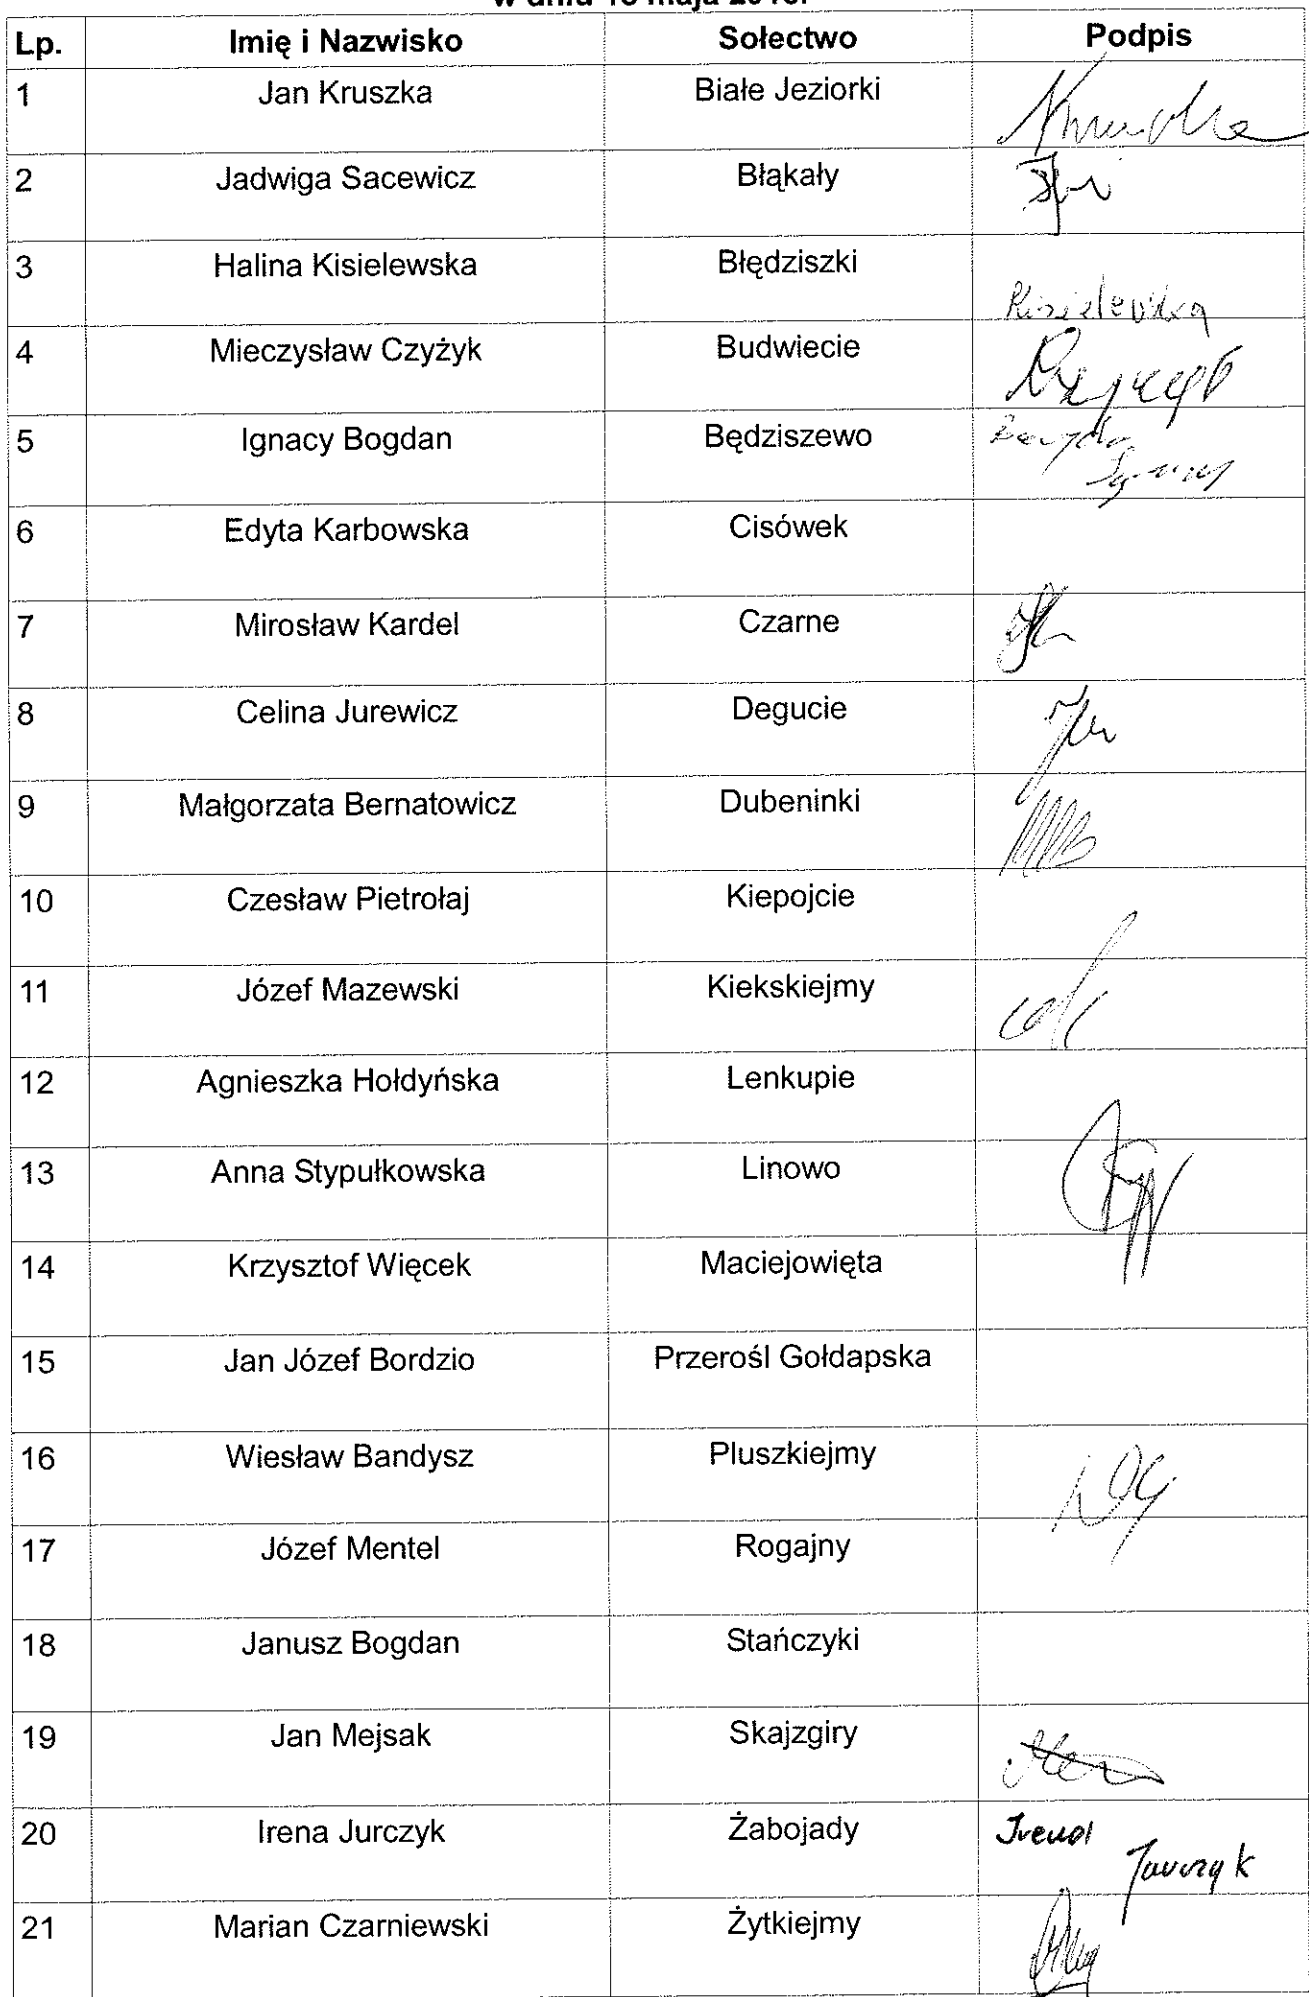 Lp. Imię i Nazwisko Sołectwo Podpis
1 Jan Kruszka Białe Jeziorki
2 Jadwiga Sacewicz Błąkały
3 Halina Kisielewska Błędziszki Kisielewska
4 Mieczysław Czyżyk Budwiecie
5 Ignacy Bogdan Będziszewo
6 Edyta Karbowska Cisówek
7 Mirosław Kardel Czarne
8 Celina Jurewicz Degucie
9 Małgorzata Bernatowicz Dubeninki
10 Czesław Pietrołaj Kiepojcie
11 Józef Mazewski Kiekskiejmy
12 Agnieszka Hołdyńska Lenkupie
13 Anna Stypułkowska Linowo
14 Krzysztof Więcek Maciejowięta
15 Jan Józef Bordzio Przerośl Gołdapska
16 Wiesław Bandysz Pluszkiejmy
17 Józef Mentel Rogajny
18 Janusz Bogdan Stańczyki
19 Jan Mejsak Skajzgiry
20 Irena Jurczyk Żabojady Irena
Jurczyk
21 Marian Czarniewski Żytkiejmy